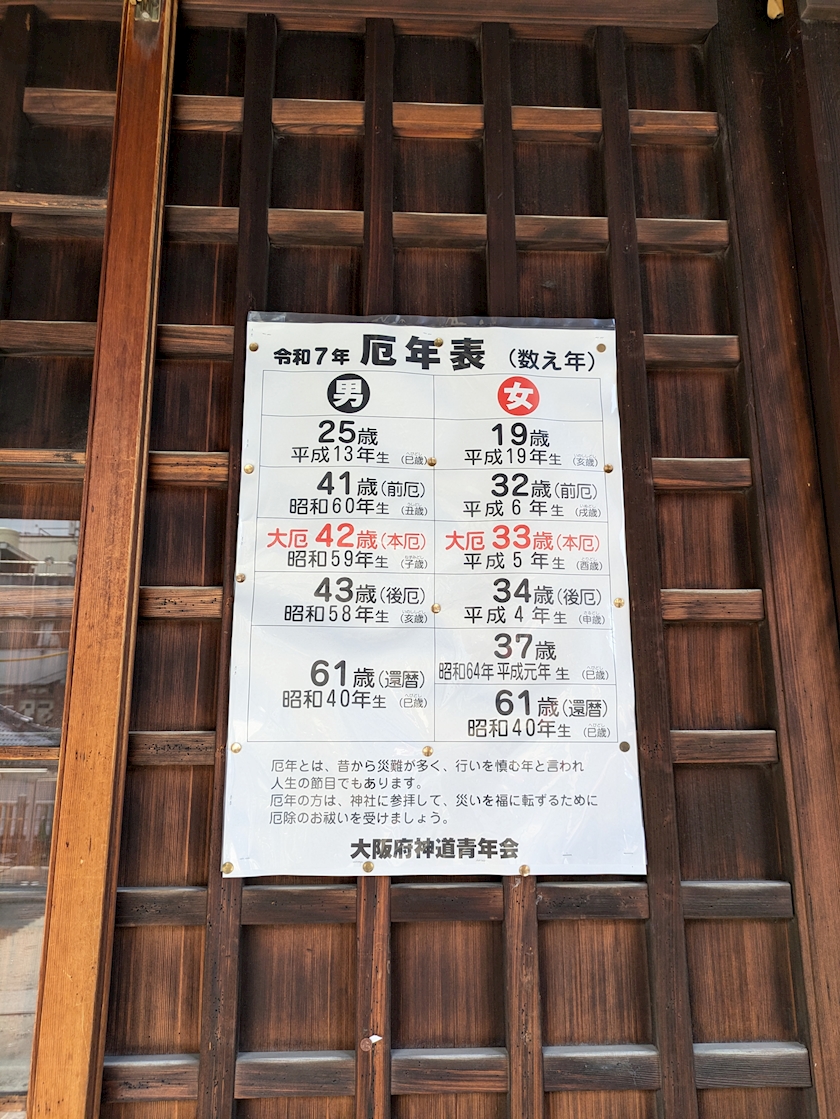 令和7年 厄年表 (数え年)
男
25歳
平成13年生 (巳歳)
41歳(前厄)
昭和60年生 (丑歳)
大厄 42歳(本厄)
昭和59年生 (子歳)
43歳(後厄)
昭和58年生 (亥歳)
61歳(還暦)
昭和40年生 (巳歳)
女
19歳
平成19年生 (亥歳)
32歳(前厄)
平成6年生 (戌歳)
大厄 33歳(本厄)
平成5年生 (酉歳)
34歳(後厄)
平成4年生 (申歳)
37歳
昭和64年 平成元年生 (巳歳)
61歳(還暦)
昭和40年生 (巳歳)
厄年とは、昔から災難が多く、行いを慎む年と言われ
人生の節目でもあります。
厄年の方は、神社に参拝して、災いを福に転ずるために
厄除のお祓いを受けましょう。
大阪府神道青年会